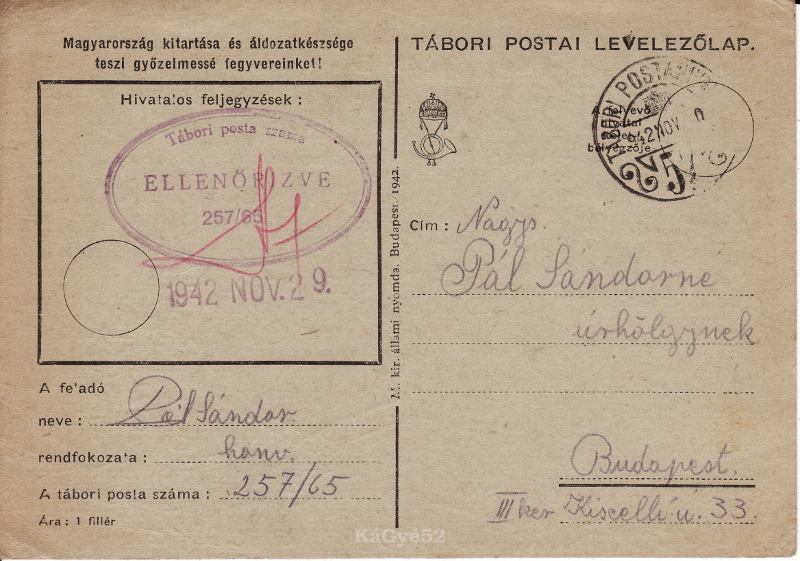 Magyarország kitartása és áldozatkészsége
teszi győzelmessé fegyvereinket!
Hivatalos feljegyzések :
Tábori posta száma
ELLENŐRIZVE
257/65
1942 NOV. 29.
A fe'adó
neve : Pál Sándor
rendfokozata : honv.
A tábori posta száma : 257/65
Ára : 1 fillér
M. kir. állami nyomda. Budapest. 1942.
TÁBORI POSTAI LEVELEZŐLAP.
TÁBORI POSTAHIV
942 NOV. 0
A felvevő
hivatal
kelet-
bélyegzője
Cím : Nagys.
Pál Sándorné
úrhölgynek
Budapest.
III ker Kiscelli ú. 33.
KáGyé52